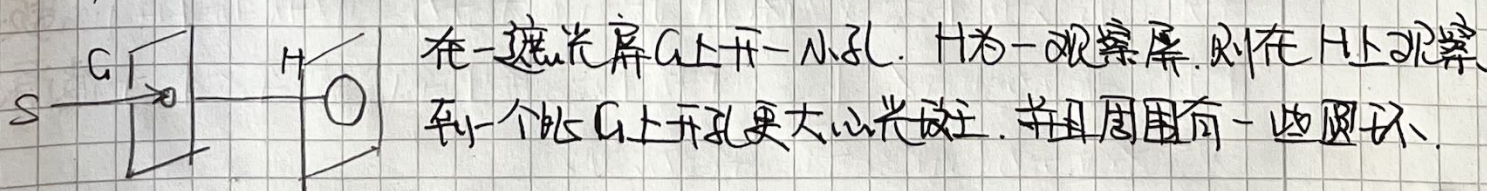 S
G
H
在一遮光屏G上开一小孔. H为一观察屏. 则在H上观察
到一个比G上开孔更大的光斑. 并且周围有一些圆环.